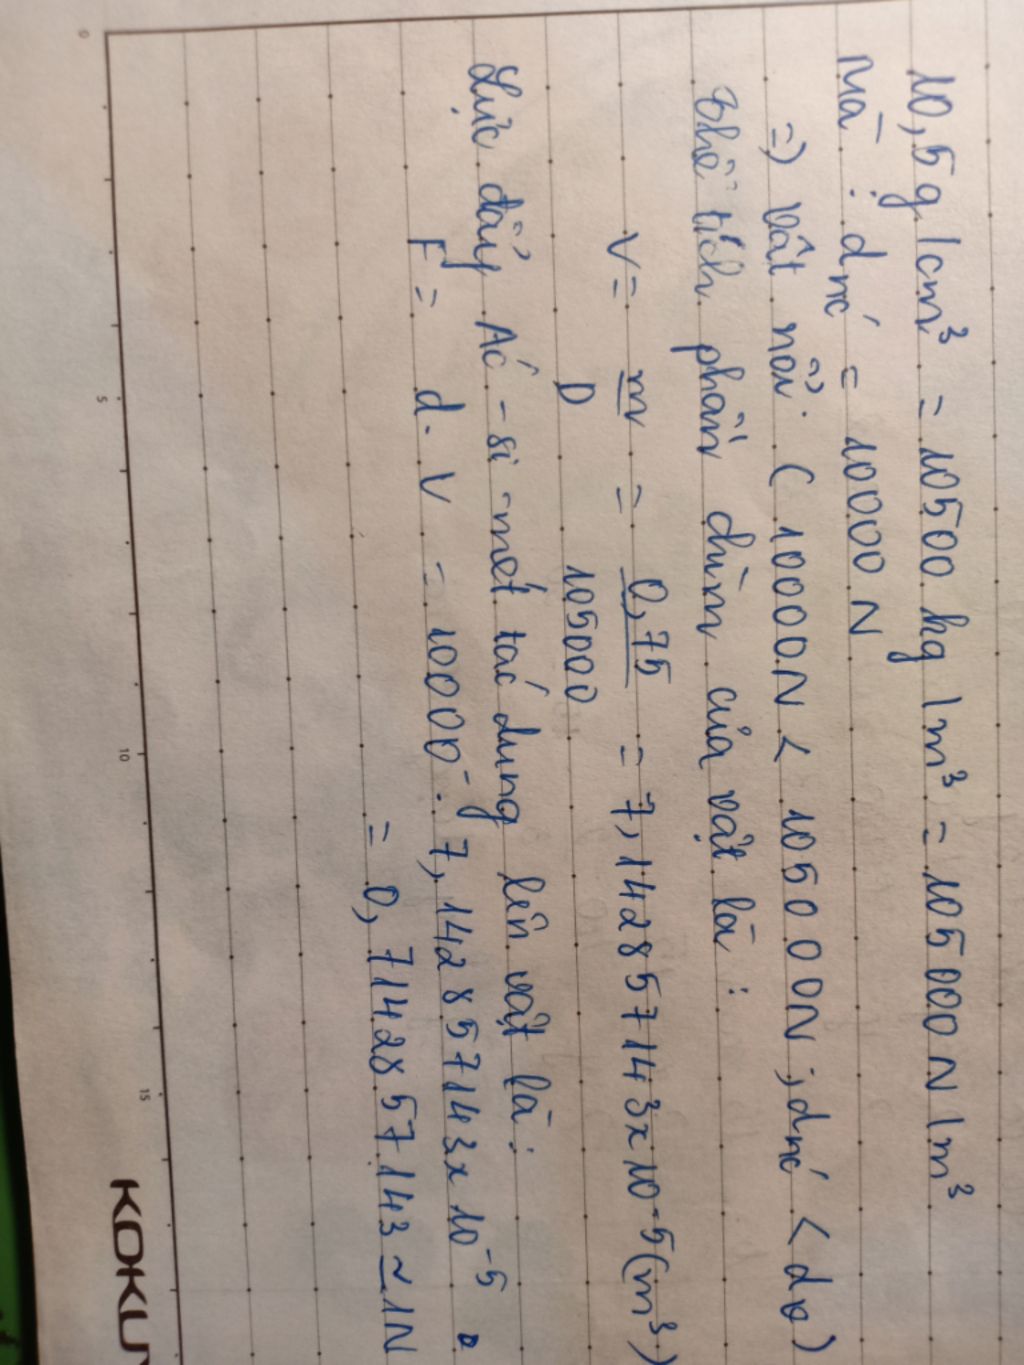 10,5g/cm³ = 10500 kg/m³ = 105000N/m³
Mà : dnć = 10000 N
=) vật nổi. ( 10000N < 105000N ; dnć < dv)
Thể tích phần chìm của vật là :
V = m/D = 0,75/105000 = 7,142857143x10⁻⁵(m³)
Lực đẩy Ác-si-mét tác dụng lên vật là :
F = d. V = 10000 . 7,142857143x10⁻⁵
= 0,7142857143 ≃ 1N
0
5
10
15